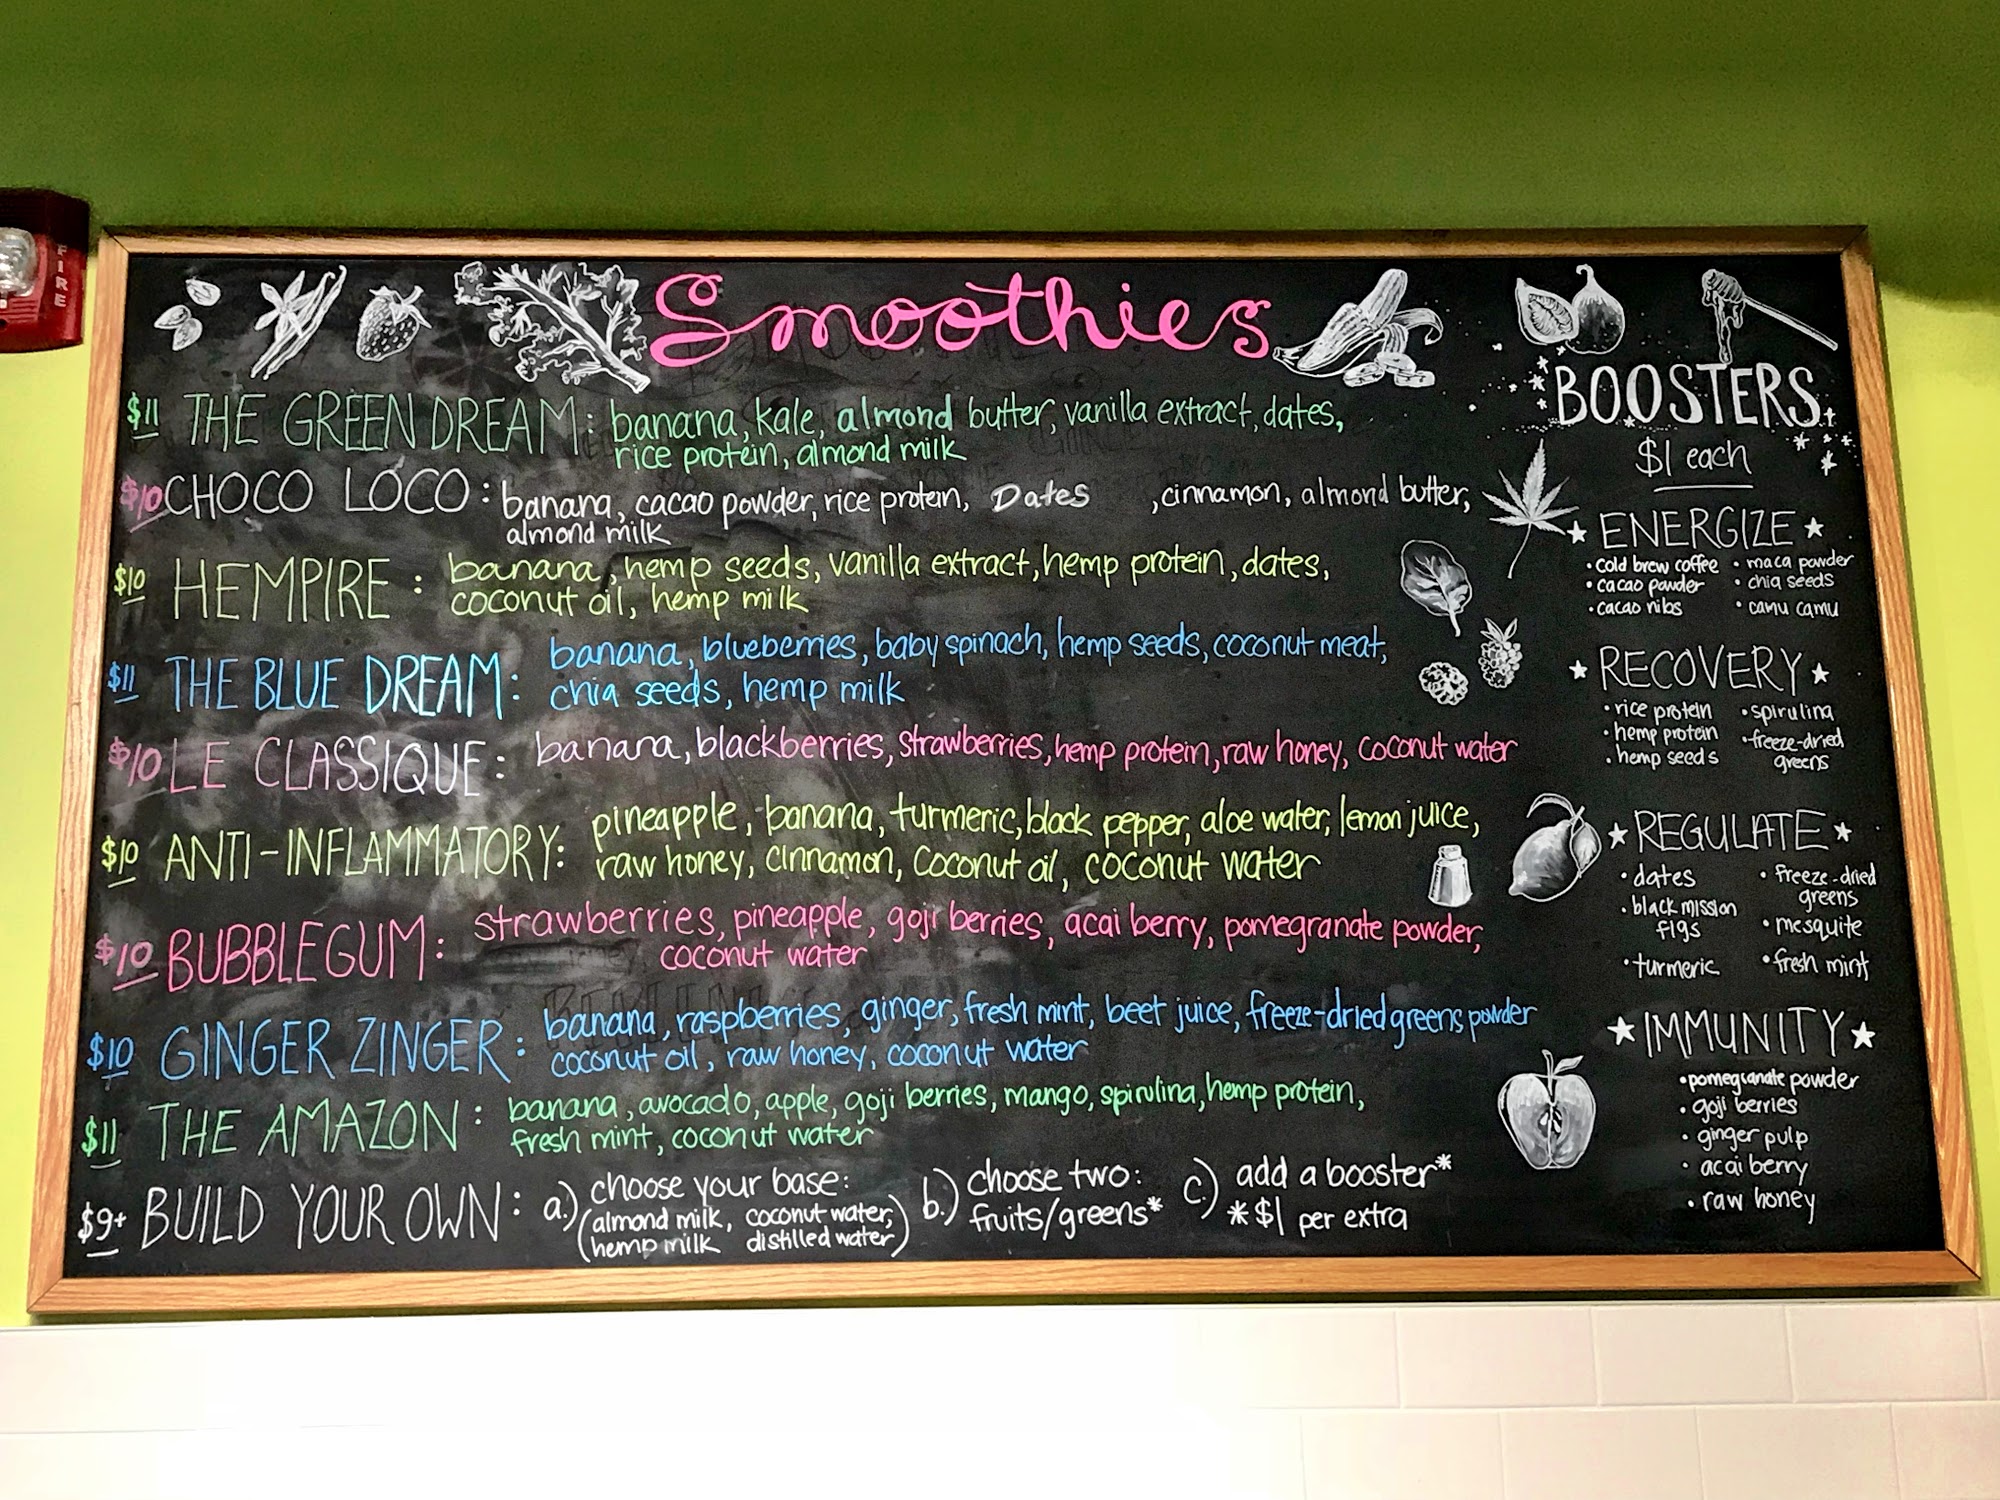 FIRE
Smoothies
$11 THE GREEN DREAM: banana, kale, almond butter, vanilla extract, dates,
rice protein, almond milk
$10 CHOCO LOCO: banana, cacao powder, rice protein, Dates ,cinnamon, almond butter,
almond milk
$10 HEMPIRE: banana, hemp seeds, vanilla extract, hemp protein, dates,
coconut oil, hemp milk
$11 THE BLUE DREAM: banana, blueberries, baby spinach, hemp seeds, coconut meat,
chia seeds, hemp milk
$10 LE CLASSIQUE: banana, blackberries, strawberries, hemp protein, raw honey, coconut water
$10 ANTI-INFLAMMATORY: pineapple, banana, turmeric, black pepper, aloe water, lemon juice,
raw honey, cinnamon, coconut oil, coconut water
$10 BUBBLEGUM: strawberries, pineapple, goji berries, acai berry, pomegranate powder,
coconut water
$10 GINGER ZINGER: banana, raspberries, ginger, fresh mint, beet juice, freeze-dried greens powder
coconut oil, raw honey, coconut water
$11 THE AMAZON: banana, avocado, apple, goji berries, mango, spirulina, hemp protein,
fresh mint, coconut water
$9+ BUILD YOUR OWN: a.) choose your base:
(almond milk, coconut water,
hemp milk distilled water)
b.) choose two:
fruits/greens*
c.) add a booster*
*$1 per extra
BOOSTERS
$1 each
ENERGIZE
• cold brew coffee • maca powder
• cacao powder • chia seeds
• cacao nibs • camu camu
RECOVERY
• rice protein • spirulina
• hemp protein • freeze-dried
• hemp seeds greens
REGULATE
• dates • freeze-dried
greens
• black mission • mesquite
figs
• turmeric • fresh mint
IMMUNITY
• pomegranate powder
• goji berries
• ginger pulp
• acai berry
• raw honey